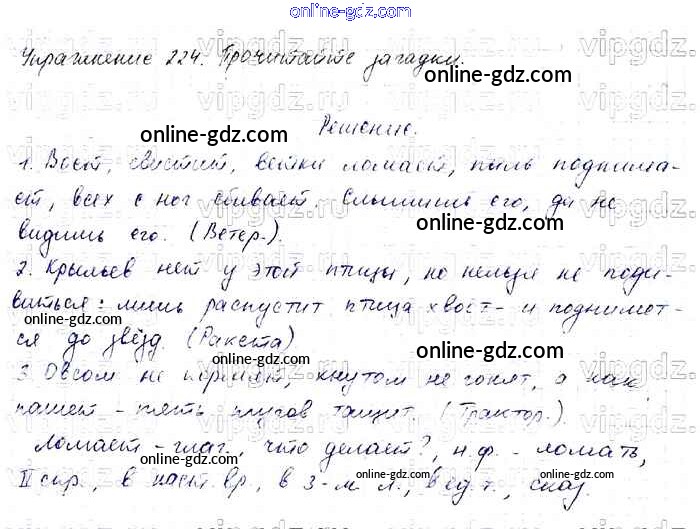 online-gdz.com
Упражнение 224. Прочитайте загадки.
online-gdz.com
Решение.
online-gdz.com
1. Воет, свистит, ветки ломает, пыль поднима-
ет, всех с ног сбивает. Слышишь его, да не
видишь его. (Ветер.).
online-gdz.com
online-gdz.com
2. Крыльев нет у этой птицы, но нельзя не поди-
виться: лишь распустит птица хвост - и поднимет-
ся до звёзд. (Ракета)
online-gdz.com
online-gdz.com
online-gdz.com
3. Овсом не кормят, кнутом не гонят, а как
пашет - пять плугов тащит. (Трактор.).
online-gdz.com
online-gdz.com
Ломает - глаг., что делает?, н.ф. - ломать,
II спр., в наст. вр., в 3-м л., в ед.ч., сказ.
online-gdz.com
online-gdz.com
online-gdz.com